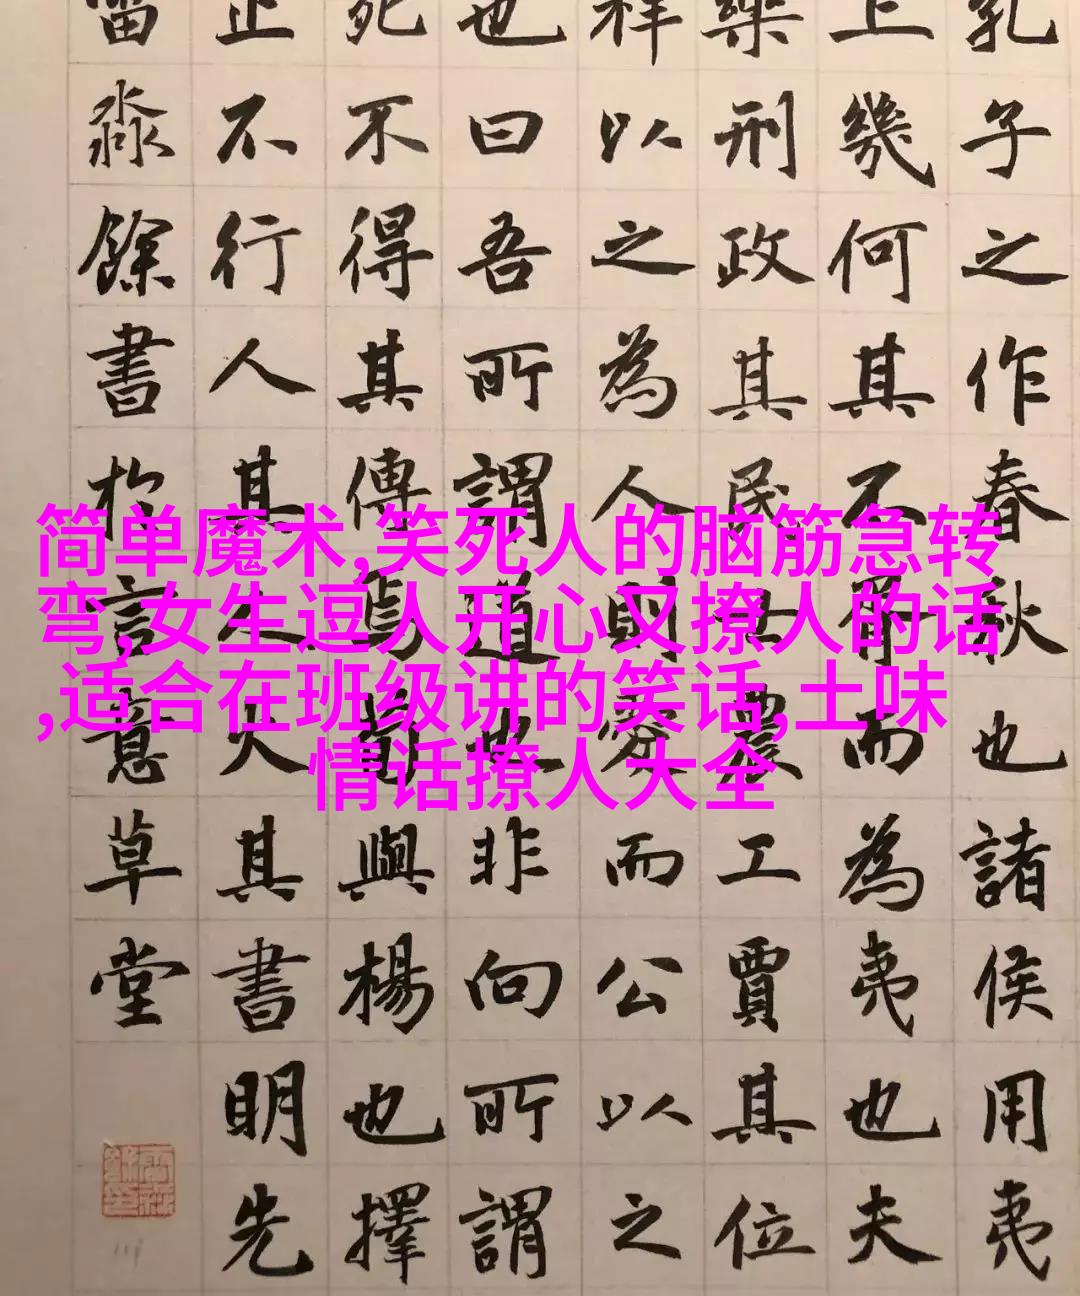 简单魔术,笑死人的脑筋急转
弯,女生逗人开心又撩人的话
,适合在班级讲的笑话,土味
情话撩人大全
孔子之作春秋也諸侯用夷
上幾何其不胥而為夷也夫
樂刑政其民士農工賈其位
祥以之為人則愛而公以之
也曰吾所謂道也非向所謂
死不得其傳焉荀與楊也擇
止不行人其人火其書明先
淼餘書於言意草堂